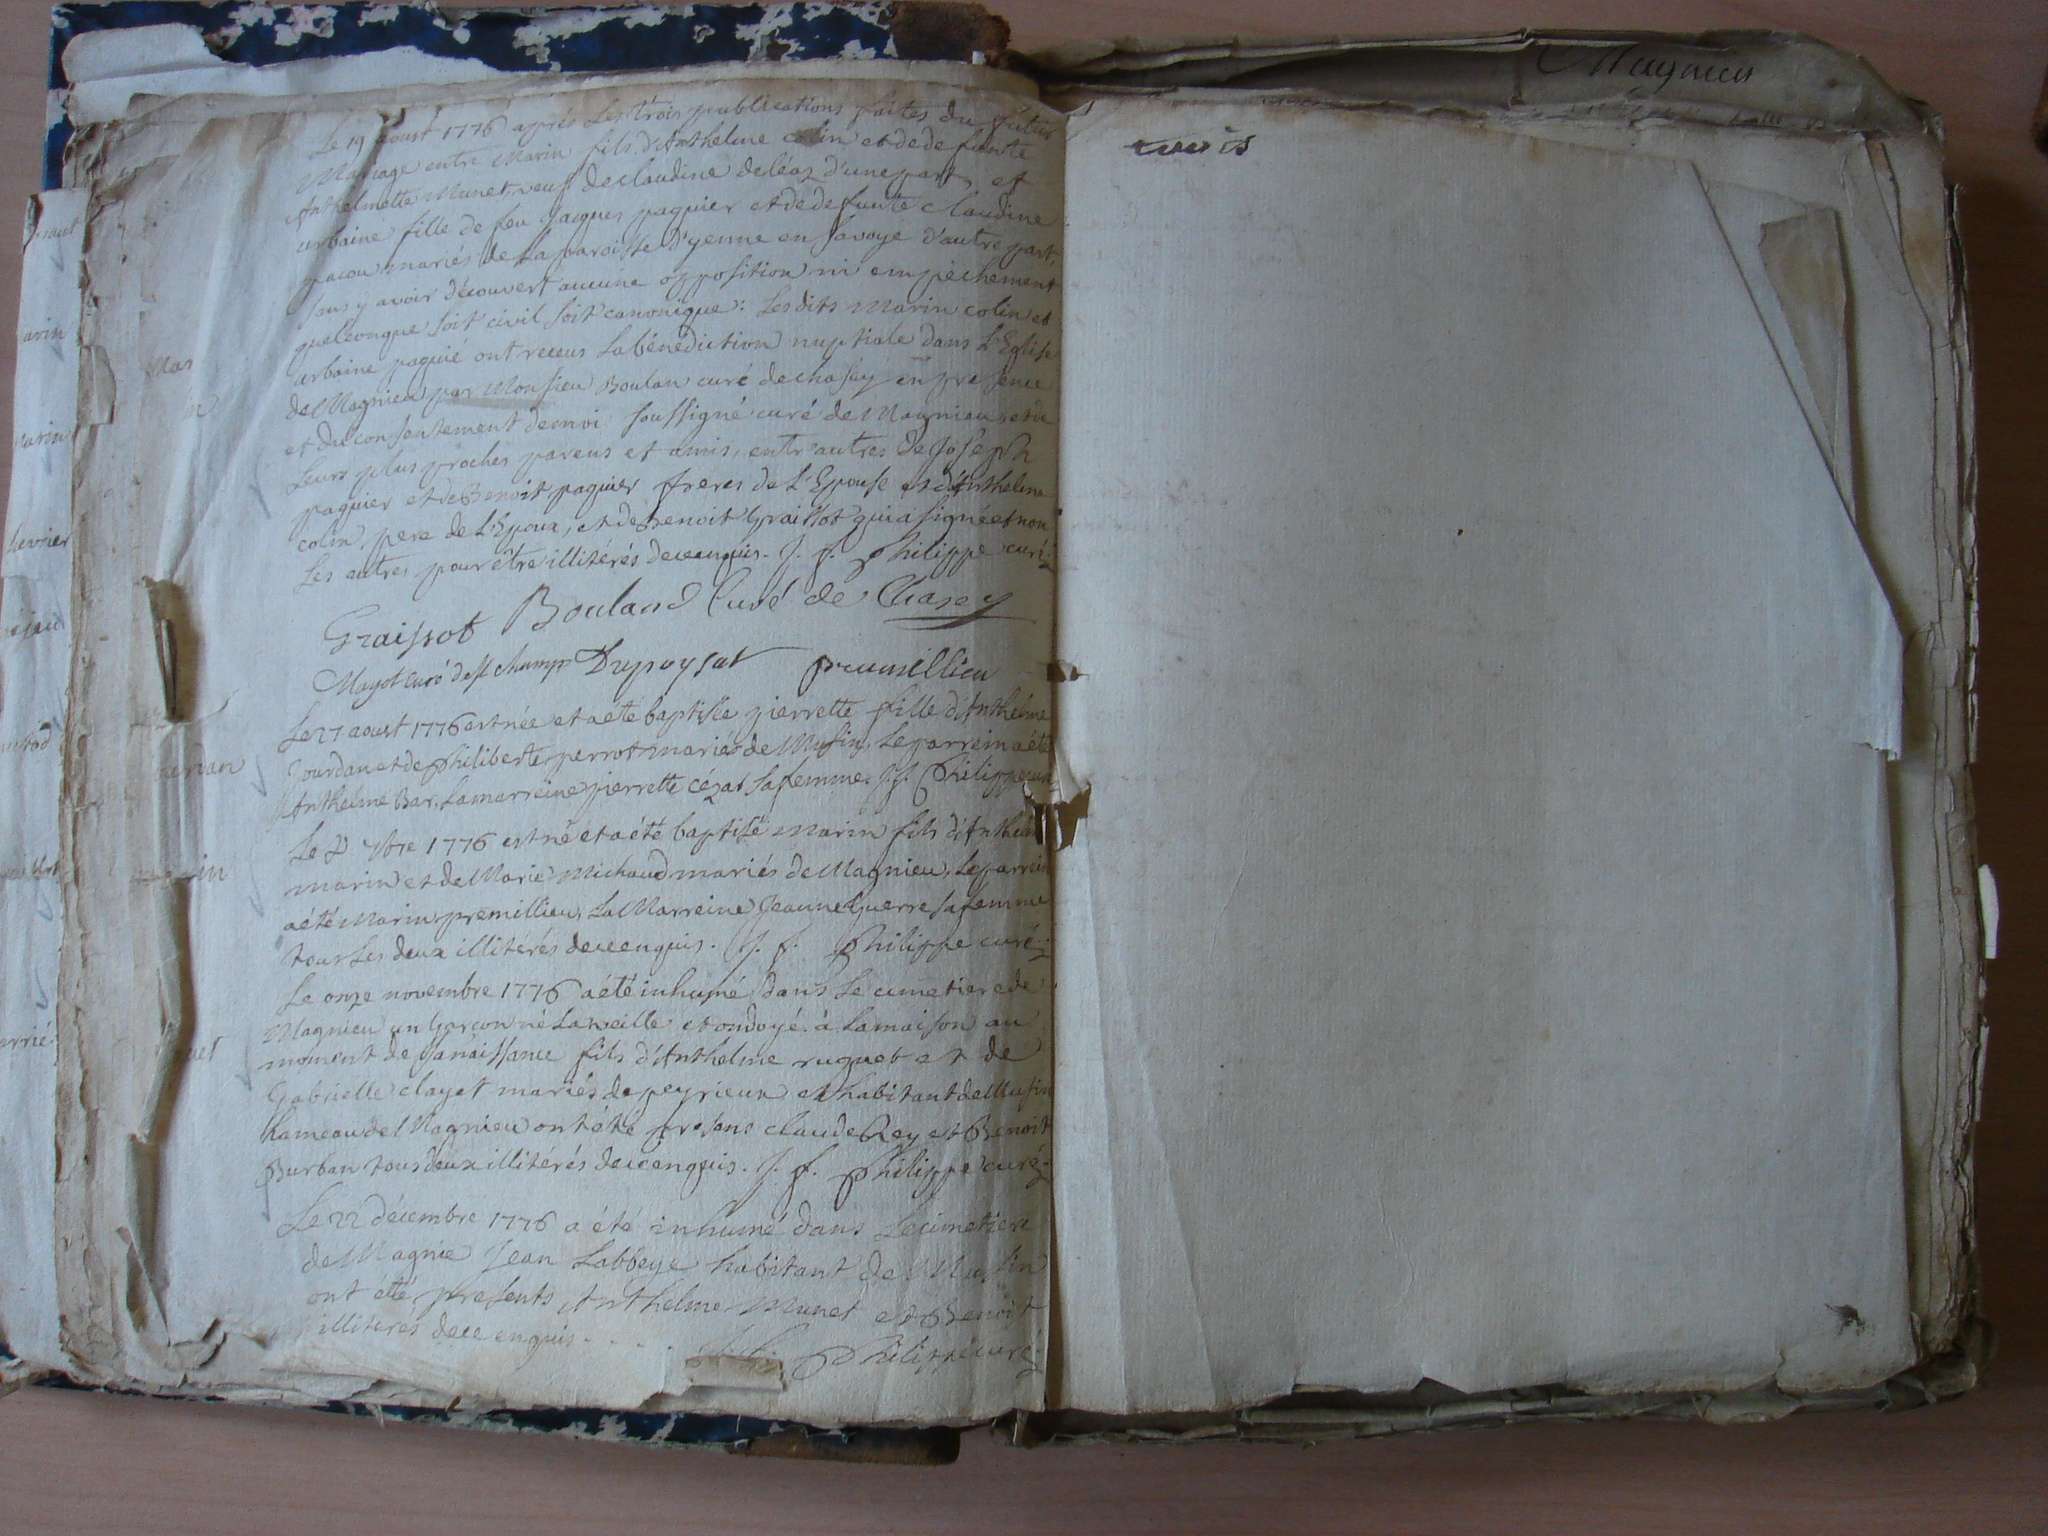 Le 19 aoust 1776 après Les trois publications faites du futur
Mariage entre Marin fils d'Anthelme colin et de defunte
Anthelmette Munet veuf de claudine deléaz d'une part, et
urbaine fille de feu Jacques paquier et de defunte claudine
pacou mariés de La paroisse d'yenne en savoye d'autre part,
sans y avoir découvert aucune opposition ni empêchement
quelconque soit civil soit canonique: Les dits Marin colin et
urbaine paquié ont receus La bénédiction nuptiale dans L'Eglise
de Magnieu par Monsieu Boulan curé de chasey en presence
et du consentement de moi soussigné curé de Magnieu, et de
Leurs plus proches parens et amis, entr'autres de Joseph
paquier et de Benoit paquier freres de L'Epouse et d'Anthelme
colin pere de L'Epoux, et de Benoit Graissot qui a signé et non
Les autres pour être illitérés de ce enquis. J. f. Philippe curé
Graissot Bouland Curé de Chasey
Mayot curé de St champ Dupoysat premillieu
Le 27 aoust 1776 est née et a été baptisée pierrette fille d'Anthelme
Jourdan et de philiberte perrot mariés de Musin, Le parrein a été
Anthelme Bar, La marreine pierrette cézat sa femme. J. f. Philippe curé
Le 7bre 1776 est né et a été baptisé Marin fils d'Anthelme
marin et de Marie Michaud mariés de Magnieu, Le parrein
a été Marin premillieu, La Marreine Jeanne Guerre sa femme
tous Les deux illitérés de ce enquis. J. f. Philippe curé
Le onze novembre 1776 a été inhumé dans Le cimetiere de
Magnieu un garçon né La veille et ondoyé à La maison au
moment de sa naissance fils d'Anthelme ruquet et de
Gabrielle clayet mariés de peyrieux et habitant de Musin
hameau de Magnieu ont été presens claude Rey et Benoit
Burban tous deux illitérés de ce enquis. J. f. Philippe curé
Le 22 décembre 1776 a été inhumé dans Le cimetiere
de Magnie Jean Labbeye habitant de Musin
ont été presents Anthelme Munet et Benoit
illiterés de ce enquis. . . . Philippe curé
Magnieu